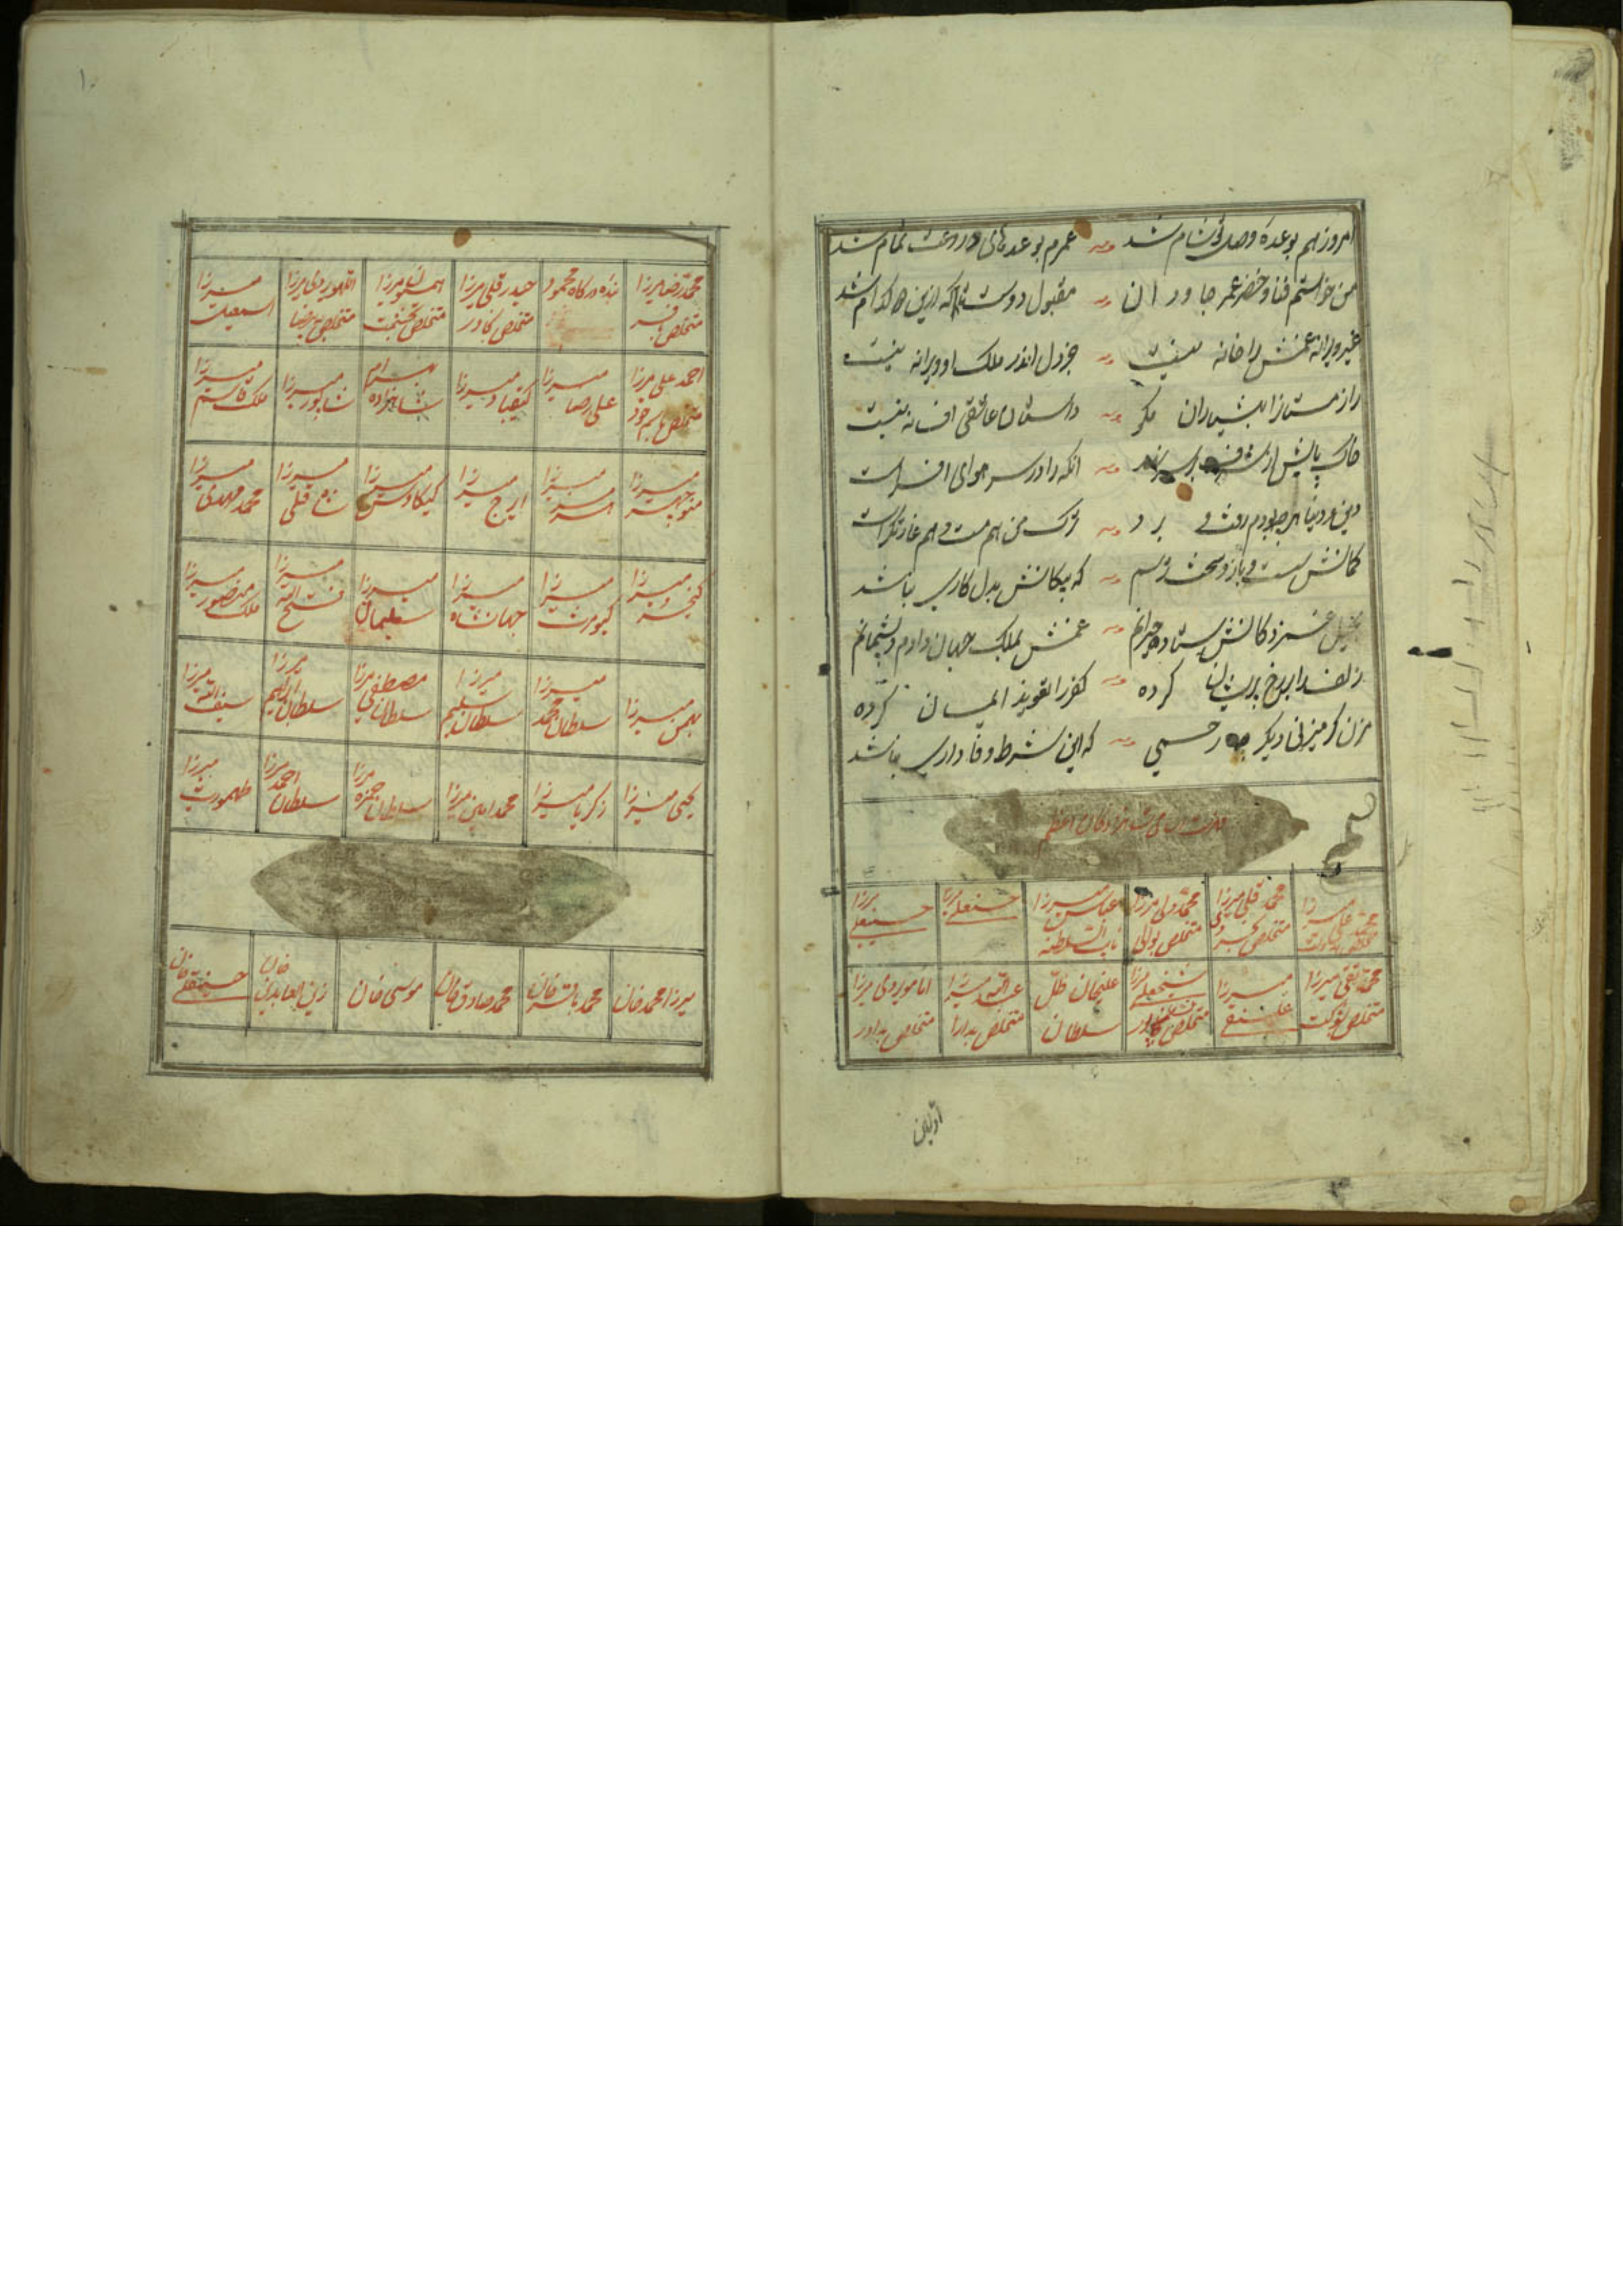 امروز هم بوعدهٔ وصل تو شام شد عمرم بوعدهای دروغت تمام شد
من خواستم فنا و خضر عمر جاودان مقبول دوست تا که ازین ها کدام شد
غیر ویرانه غمش را خانه نیست جز دل اندر ملک او ویرانه نیست
راز مستانرا بهشیاران مگو داستان عاشقی افسانه نیست
خاک پایش از شرف بر سر نهد انکه را در سر هوای افسر است
دین و دنیا هرچه بودم رفت و برد ترک من هم مست و هم غارتگر است
کمانش سست و بازو سخت ترسم که پیکانش بدل کاری نباشد
غمش بملک جهان دادم و پشیمانم
زلف را بر رخ پریشان کرده کفر را تعویذ ایمان کرده
مزن گر میزنی دیگر به رحمی که این شرط وفاداری نباشد
شاهزادگان اعظم
محمد علی میرزا
محمد قلی میرزا متخلص بخسروی
محمد ولی میرزا متخلص بوالی
عباس میرزا نایب السلطنه
حسنعلی میرزا
حسینعلی میرزا
محمد تقی میرزا متخلص بشوکت
علینقی میرزا
شیخعلی میرزا متخلص بشاپور
علیخان ظل سلطان
عبدالله میرزا متخلص بدارا
امامویردی میرزا متخلص بداور
اولان
۱۰
محمد رضا میرزا متخلص بافسر
بنده درگاه محمود
حیدر قلی میرزا متخلص بخاور
همایون میرزا متخلص بحشمت
اللهویردی میرزا متخلص ببیضا
اسمعیل میرزا
احمد علی میرزا متخلص باسم خود
علی رضا میرزا
کیقباد میرزا
بهرام شاهزاده
شاپور میرزا
ملک قاسم میرزا
منوچهر میرزا
هرمز میرزا
ایرج میرزا
کیکاوس میرزا
شاه قلی میرزا
محمد مهدی میرزا
کیخسرو میرزا
کیومرث میرزا
جهانشاه میرزا
سلیمان میرزا
فتح الله میرزا
ملک منصور میرزا
بهمن میرزا
سلطان محمد میرزا
سلطان سلیم میرزا
سلطان مصطفی میرزا
سلطان ابراهیم میرزا
سیف الله میرزا
یحیی میرزا
زکریا میرزا
محمد امین میرزا
سلطان حمزه میرزا
سلطان احمد میرزا
طهمورث میرزا
میرزا محمد خان
محمد باقر خان
محمد صادق خان
موسی خان
زین العابدین خان
حسینقلی خان